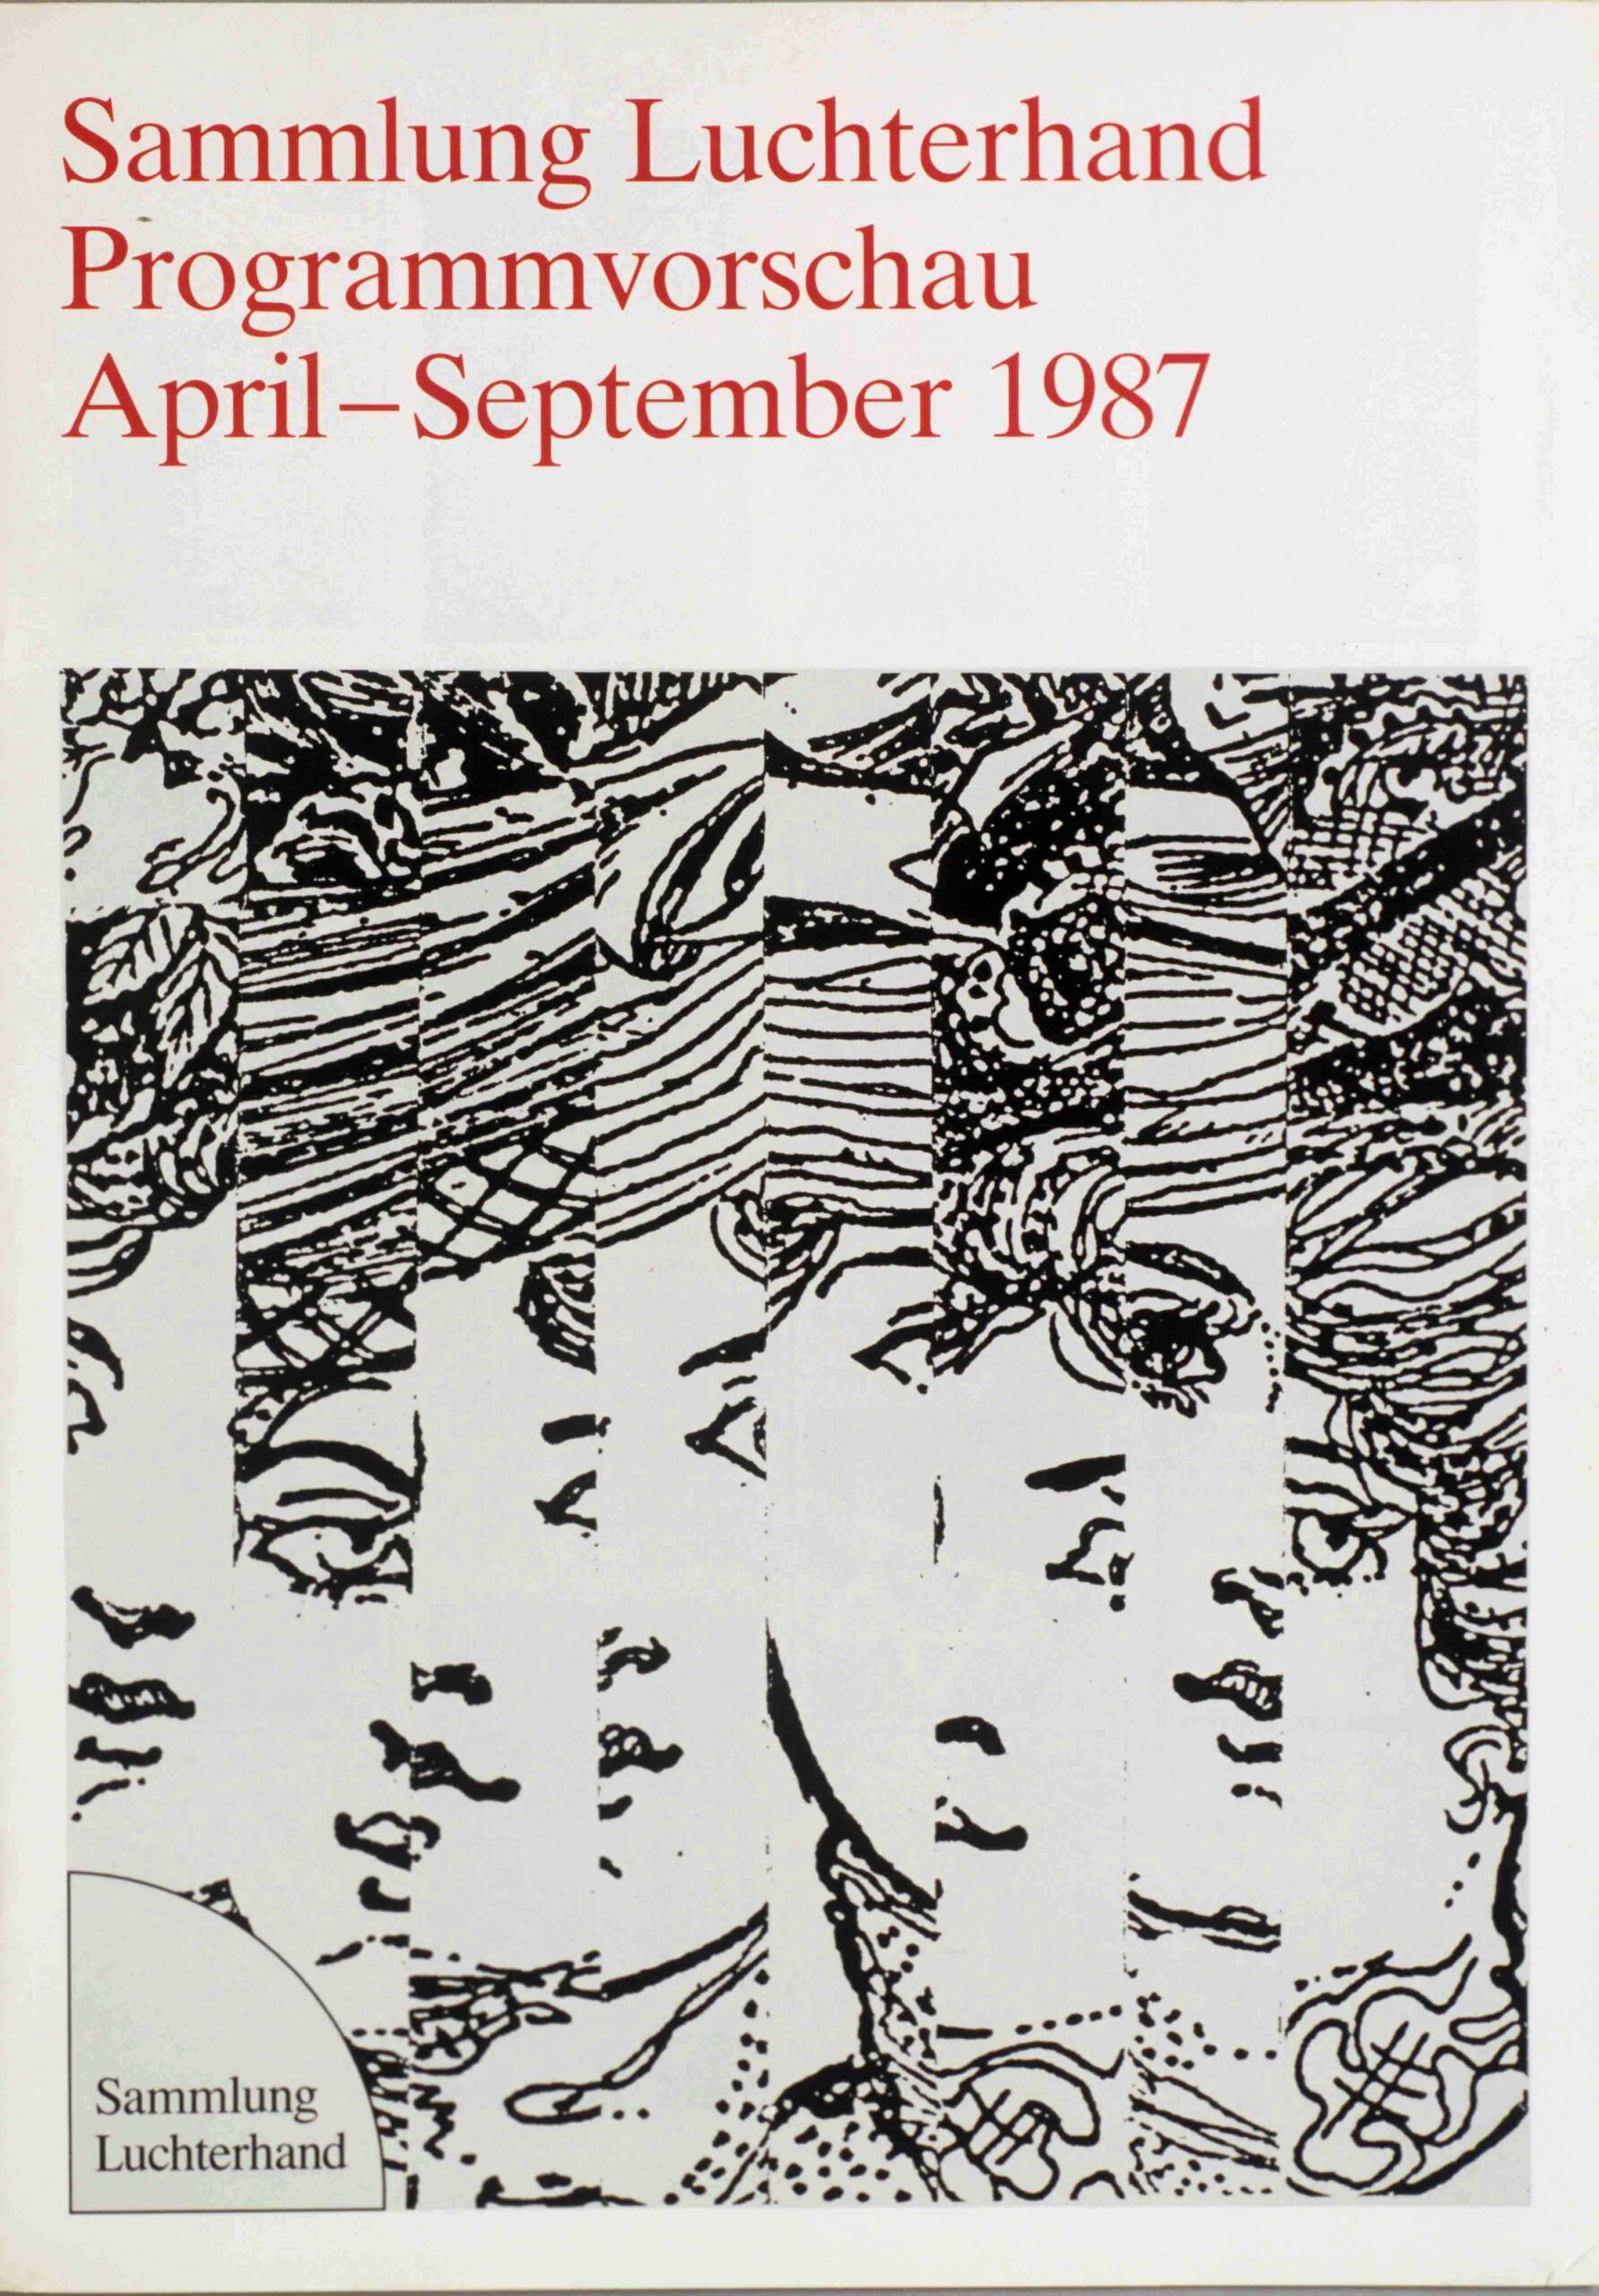 Sammlung Luchterhand
Programmvorschau
April–September 1987
Sammlung
Luchterhand